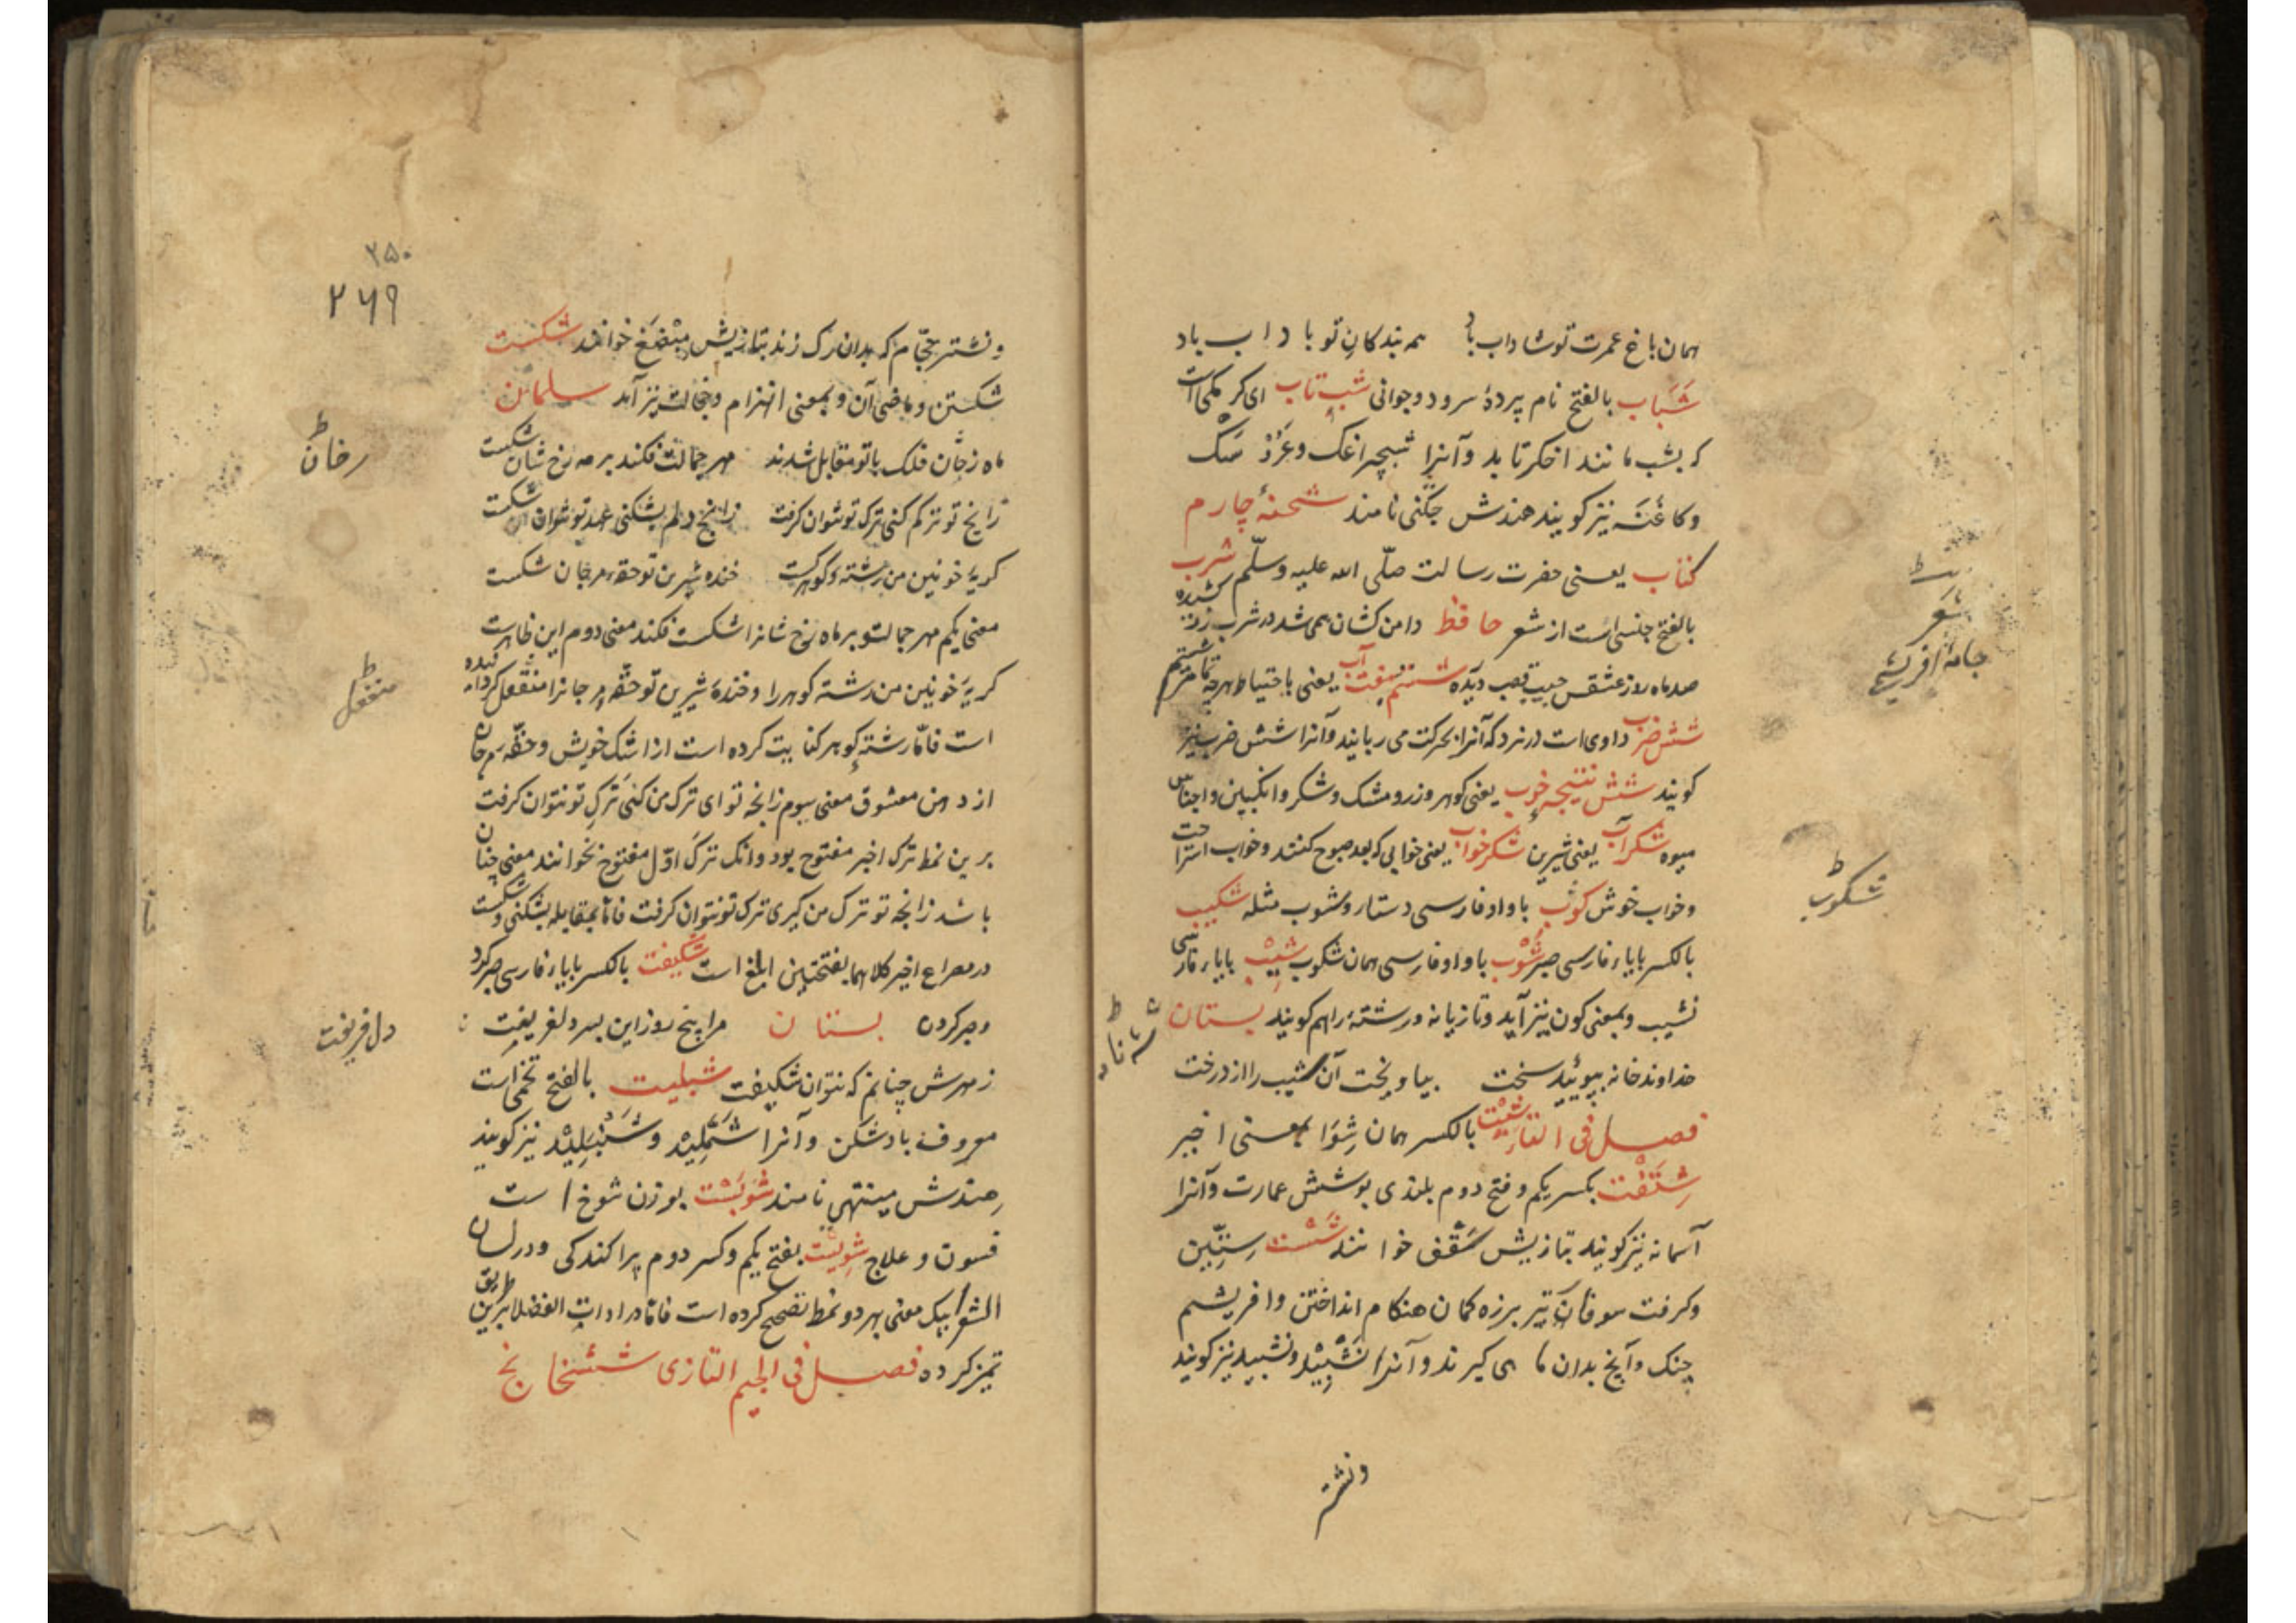 همان باغ عمرت تو شاداب باد همه بندکان تو با داب باد
شَبَاب بالفتح نام پردهٔ سرود و جوانی شب تاب ای کرمکی است
که بشب مانند اخکر تابد و آنرا شبچراغک و
و کاغنه نیز کویند هندش جکنی نامند شحنهٔ چارم
کتاب یعنی حضرت رسالت صلّی الله علیه وسلّم شرب
بالفتح جنسی است از شعر حافظ دامن کشان همی شد در شرب زر کشیده
صد ماه رو ز عشقش جیب قصب دریده شستم هفت آب یعنی باحتیاط هر چه تمامتر شستم
شش ضرب داوی است در نرد که آنرا بحرکت می ربایند و آنرا شش ضرب نیز
کویند شش نتیجهٔ خوب یعنی کوهر و زر و مشک و شکر و انکبین و اجناس
میوه شکرآب یعنی شیرین شکرخواب یعنی خوابی که بعد صبوح کنند و خواب استراحت
و خواب خوش کوب باواو فارسی دستار و شوب مثله شکیب
بالکسر بایاء فارسی صبر شوب باواو فارسی همان شکوب شیب بایاء فارسی
نشیب و بمعنی کون نیز آید و تازیانه و رشتهٔ را هم کویند بستان
خداوند خانه بپوئید سخت بیاویخت آن شیب را از درخت
فصل فی التاء بالکسر همان شوا بمعنی اخیر
شتفت بکسر یکم و فتح دوم بلندی پوشش عمارت و آنرا
آسمانه نیز کویند بتازیش سقف خوانند شست ستین
و کرفت سوفار تیر بر زه کمان هنکام انداختن و افریشم
چنک و آنچ بدان ماهی کیرند و آنرا نشپید نیز کویند
ونشتر
شعر
جامهٔ افریشمی
شکوب
۲۵۰
۲۶۹
ونشتر حجّام که بدان رک زند بتازیش مبضع خوانند شکست
شکستن و ماضی آن و بمعنی انهزام و خجالت نیز آید سلمان
ماه رخان فلک باتو مقابل شدند مهر جمالت فکند بر مه رخ شان شکست
زانچ تو ترکم کنی ترک تو نتوان کرفت زانچ دلم بشکنی عهد تو نتوان شکست
کریهٔ خونین من رشته کوهر کست خنده شیرین تو حقه مرجان شکست
معنی یکم مهر جمالتو بر ماه رخ شانرا شکست فکند معنی دوم این ظاهرست
کریهٔ خونین من رشته کوهر را و خندهٔ شیرین تو حقّه مرجانرا منفعل کردانیده
است فامّا رشته کوهر کنایت کرده است از اشک خویش و حقّه مرجان
از دهن معشوق معنی سیوم زانچه تو ای ترک من کنی ترک تو نتوان کرفت
برین نمط ترک اخیر مفتوح بود وانک ترک اوّل مفتوح نخوانند معنی چنان
باشد زانچه تو ترک من کیری ترک تو نتوان کرفت فامّا بمقابله بشکنی و شکست
در مصراع اخیر کلاهما بفتحتین ابلغ است شکیفت بالکسر بایاء فارسی صبر کرد
وصبر کردن بستان مرا پنج روز این پسر دل فریفت
زمهرش چنانم که نتوان شکیفت شبلیت بالفتح تخمی است
معروف بادشکن و آنرا شملید و شنبلید نیز کویند
هندش میتهی نامند شوبست بوزن شوخ است
فسون و علاج شویست بفتح یکم و کسر دوم پراکندکی و در لسان
الشعرا بیک معنی بهر دو نمط تصحیح کرده است فامّا در ادات الفضلا برین طریق
تمیز کرده فصل فی الجیم التازی
رخان
منفعل
دل فریفت